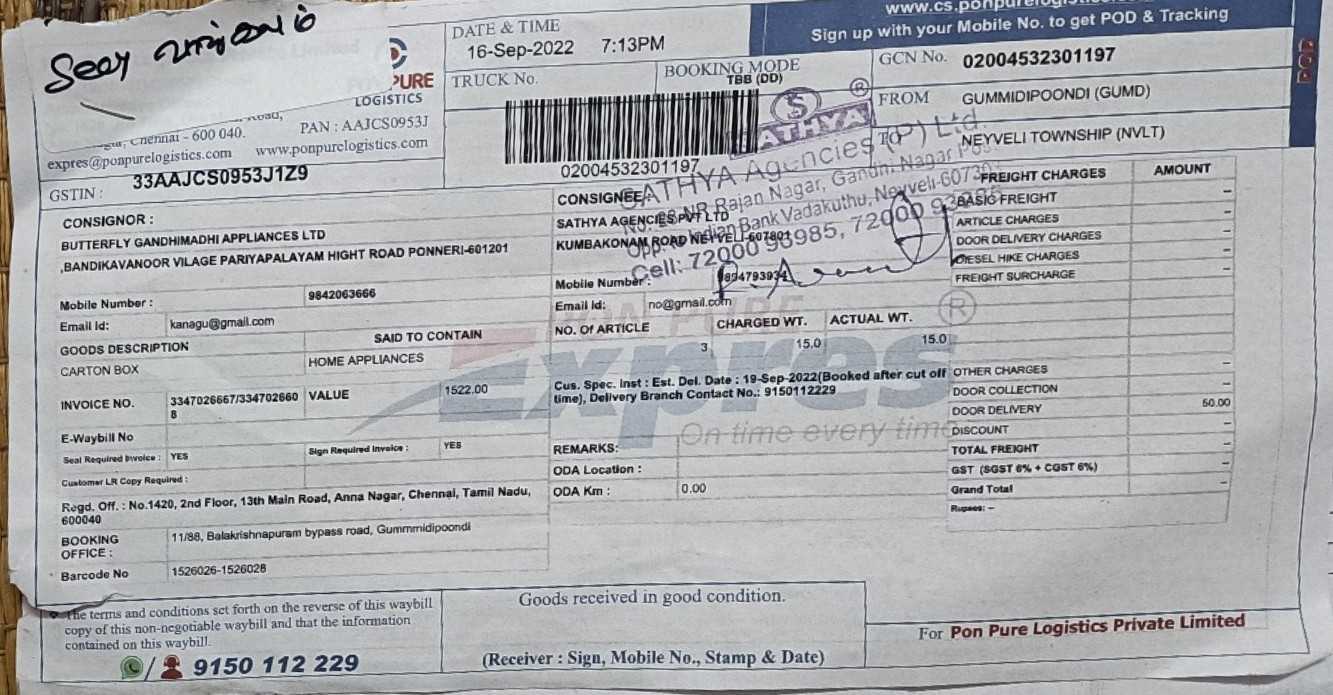 Seal வாங்கவும்
PURE
LOGISTICS
Chennai - 600 040.
PAN : AAJCS0953J
expres@ponpurelogistics.com www.ponpurelogistics.com
GSTIN : 33AAJCS0953J1Z9
DATE & TIME
16-Sep-2022 7:13PM
TRUCK No.
BOOKING MODE
TBB (DD)
02004532301197
Sign up with your Mobile No. to get POD & Tracking
GCN No. 02004532301197
FROM GUMMIDIPOONDI (GUMD)
TO NEYVELI TOWNSHIP (NVLT)
POD
SATHYA
SATHYA Agencies (P) Ltd.
Rajan Nagar, Gandhi Nagar
Indian Bank Vadakuthu, Neyveli-
Cell: 72000 93985, 72000
CONSIGNOR :
BUTTERFLY GANDHIMADHI APPLIANCES LTD
,BANDIKAVANOOR VILAGE PARIYAPALAYAM HIGHT ROAD PONNERI-601201
Mobile Number : 9842063666
Email Id: kanagu@gmail.com
GOODS DESCRIPTION SAID TO CONTAIN
CARTON BOX HOME APPLIANCES
INVOICE NO. 3347026667/334702660
8
VALUE 1522.00
E-Waybill No
Seal Required Invoice : YES Sign Required Invoice : YES
Customer LR Copy Required :
Regd. Off. : No.1420, 2nd Floor, 13th Main Road, Anna Nagar, Chennai, Tamil Nadu,
600040
BOOKING
OFFICE :
11/88, Balakrishnapuram bypass road, Gummmidipoondi
Barcode No 1526026-1526028
CONSIGNEE
SATHYA AGENCIES PVT LTD
KUMBAKONAM ROAD NEYVELI-607801
Mobile Number :
Email Id: no@gmail.com
NO. Of ARTICLE CHARGED WT. ACTUAL WT.
3 15.0 15.0
Cus. Spec. Inst : Est. Del. Date : 19-Sep-2022(Booked after cut off
time), Delivery Branch Contact No.: 9150112229
REMARKS:
ODA Location :
ODA Km : 0.00
PON PURE
Expres
On time every time
FREIGHT CHARGES AMOUNT
BASIC FREIGHT –
ARTICLE CHARGES –
DOOR DELIVERY CHARGES –
DIESEL HIKE CHARGES –
FREIGHT SURCHARGE –
OTHER CHARGES –
DOOR COLLECTION –
DOOR DELIVERY 50.00
DISCOUNT –
TOTAL FREIGHT –
GST (SGST 6% + CGST 6%) –
Grand Total –
Rupees: –
The terms and conditions set forth on the reverse of this waybill
copy of this non-negotiable waybill and that the information
contained on this waybill.
/ 9150 112 229
Goods received in good condition.
(Receiver : Sign, Mobile No., Stamp & Date)
For Pon Pure Logistics Private Limited